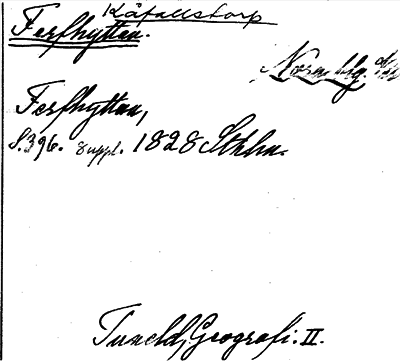 Kåfallstorp
Ferfhyttan.
Ferfhyttan,
S. 396. suppl. 1828 Sthlm.
Tuneld, Geografi. II.